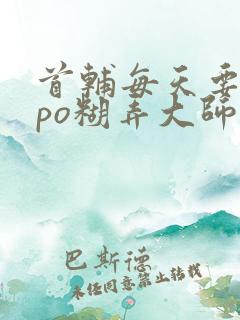 首辅每天要
po糊弄大师
巴斯德
未经同意禁止转载